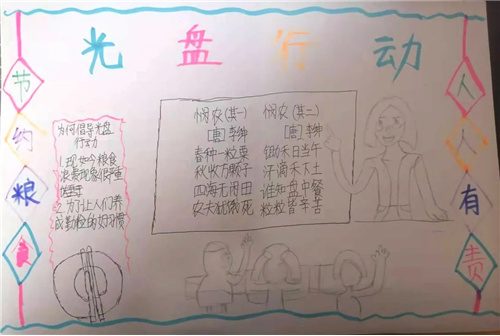 光盘行动
节约粮
为何倡导光盘
行动
1.现如今粮食
浪费现象很严重
2.为了让人们养
成勤俭的好习惯
悯农(其一)
[唐]李绅
春种一粒粟
秋收万颗子
四海无闲田
农夫犹饿死
悯农(其二)
[唐]李绅
锄禾日当午
汗滴禾下土
谁知盘中餐
粒粒皆辛苦
人人有责